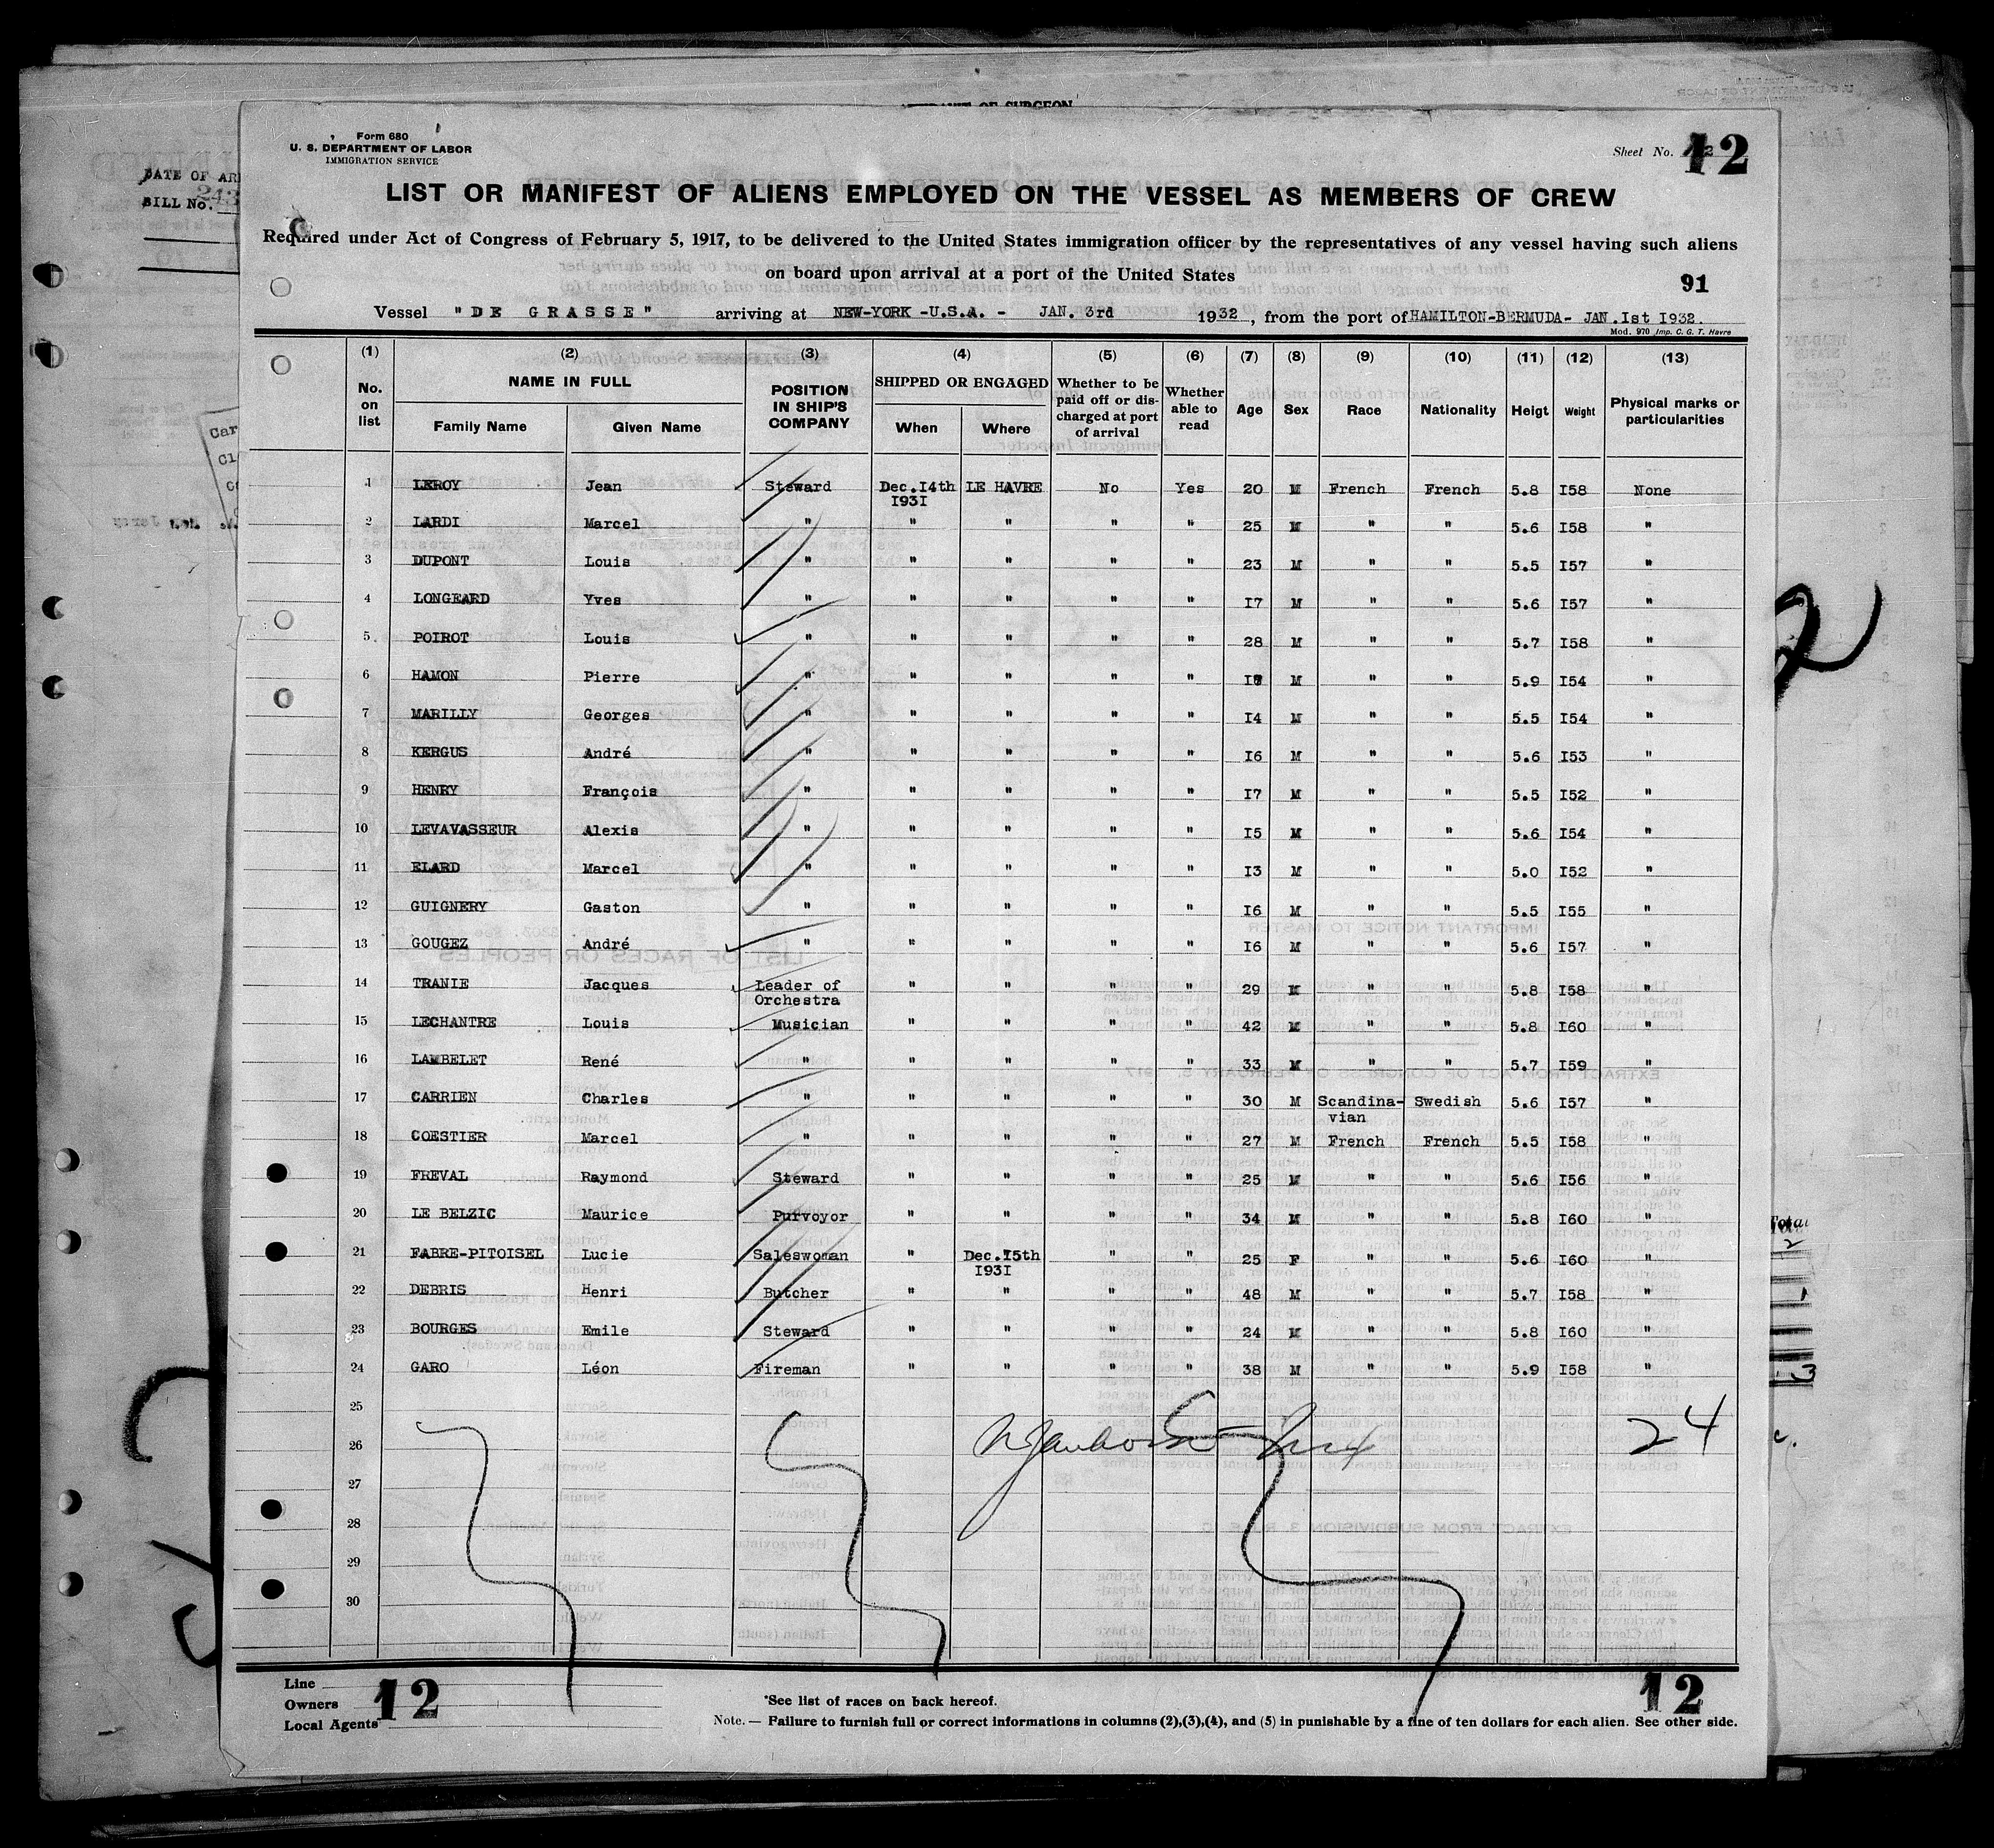 AFFIDAVIT OF SURGEON
Form 680
U. S. DEPARTMENT OF LABOR
IMMIGRATION SERVICE
Sheet No. 12
DATE OF AR
BILL No. 243
LIST OR MANIFEST OF ALIENS EMPLOYED ON THE VESSEL AS MEMBERS OF CREW
Required under Act of Congress of February 5, 1917, to be delivered to the United States immigration officer by the representatives of any vessel having such aliens
on board upon arrival at a port of the United States
91
Vessel "DE GRASSE" arriving at NEW-YORK -U.S.A. - JAN. 3rd 1932, from the port of HAMILTON-BERMUDA- JAN.1st I932.
Mod. 970 Imp. C. G. T. Havre
(1) (2) (3) (4) (5) (6) (7) (8) (9) (10) (11) (12) (13)
No. on list NAME IN FULL Family Name Given Name POSITION IN SHIP'S COMPANY SHIPPED OR ENGAGED When Where Whether to be paid off or discharged at port of arrival Whether able to read Age Sex Race Nationality Heigt Weight Physical marks or particularities
1 LEROY Jean Steward Dec.I4th I93I LE HAVRE No Yes 20 M French French 5.8 I58 None
2 LARDI Marcel " " " " " 25 M " " 5.6 I58 "
3 DUPONT Louis " " " " " 23 M " " 5.5 I57 "
4 LONGEARD Yves " " " " " I7 M " " 5.6 I57 "
5 POIROT Louis " " " " " 28 M " " 5.7 I58 "
6 HAMON Pierre " " " " " M " " 5.9 I54 "
7 MARILLY Georges " " " " " I4 M " " 5.5 I54 "
8 KERGUS André " " " " " I6 M " " 5.6 I53 "
9 HENRY François " " " " " I7 M " " 5.5 I52 "
10 LEVAVASSEUR Alexis " " " " " I5 M " " 5.6 I54 "
11 ELARD Marcel " " " " " I3 M " " 5.0 I52 "
12 GUIGNERY Gaston " " " " " I6 M " " 5.5 I55 "
13 GOUGEZ André " " " " " I6 M " " 5.6 I57 "
14 TRANIE Jacques Leader of Orchestra " " " " 29 M " " 5.8 I58 "
15 LECHANTRE Louis Musician " " " " 42 M " " 5.8 I60 "
16 LAMBELET René " " " " " 33 M " " 5.7 I59 "
17 CARRIEN Charles " " " " " 30 M Scandina-vian Swedish 5.6 I57 "
18 COESTIER Marcel " " " " " 27 M French French 5.5 I58 "
19 FREVAL Raymond Steward " " " " 25 M " " 5.6 I56 "
20 LE BELZIC Maurice Purvoyor " " " " 34 M " " 5.8 I60 "
21 FABRE-PITOISEL Lucie Saleswoman " Dec.I5th I93I " " 25 F " " 5.6 I60 "
22 DEBRIS Henri Butcher " " " " 48 M " " 5.7 I58 "
23 BOURGES Emile Steward " " " " 24 M " " 5.8 I60 "
24 GARO Léon Fireman " " " " 38 M " " 5.9 I58 "
25
26 24
27
28
29
30
Line
Owners
Local Agents
12
12
*See list of races on back hereof.
Note. — Failure to furnish full or correct informations in columns (2),(3),(4), and (5) in punishable by a fine of ten dollars for each alien. See other side.